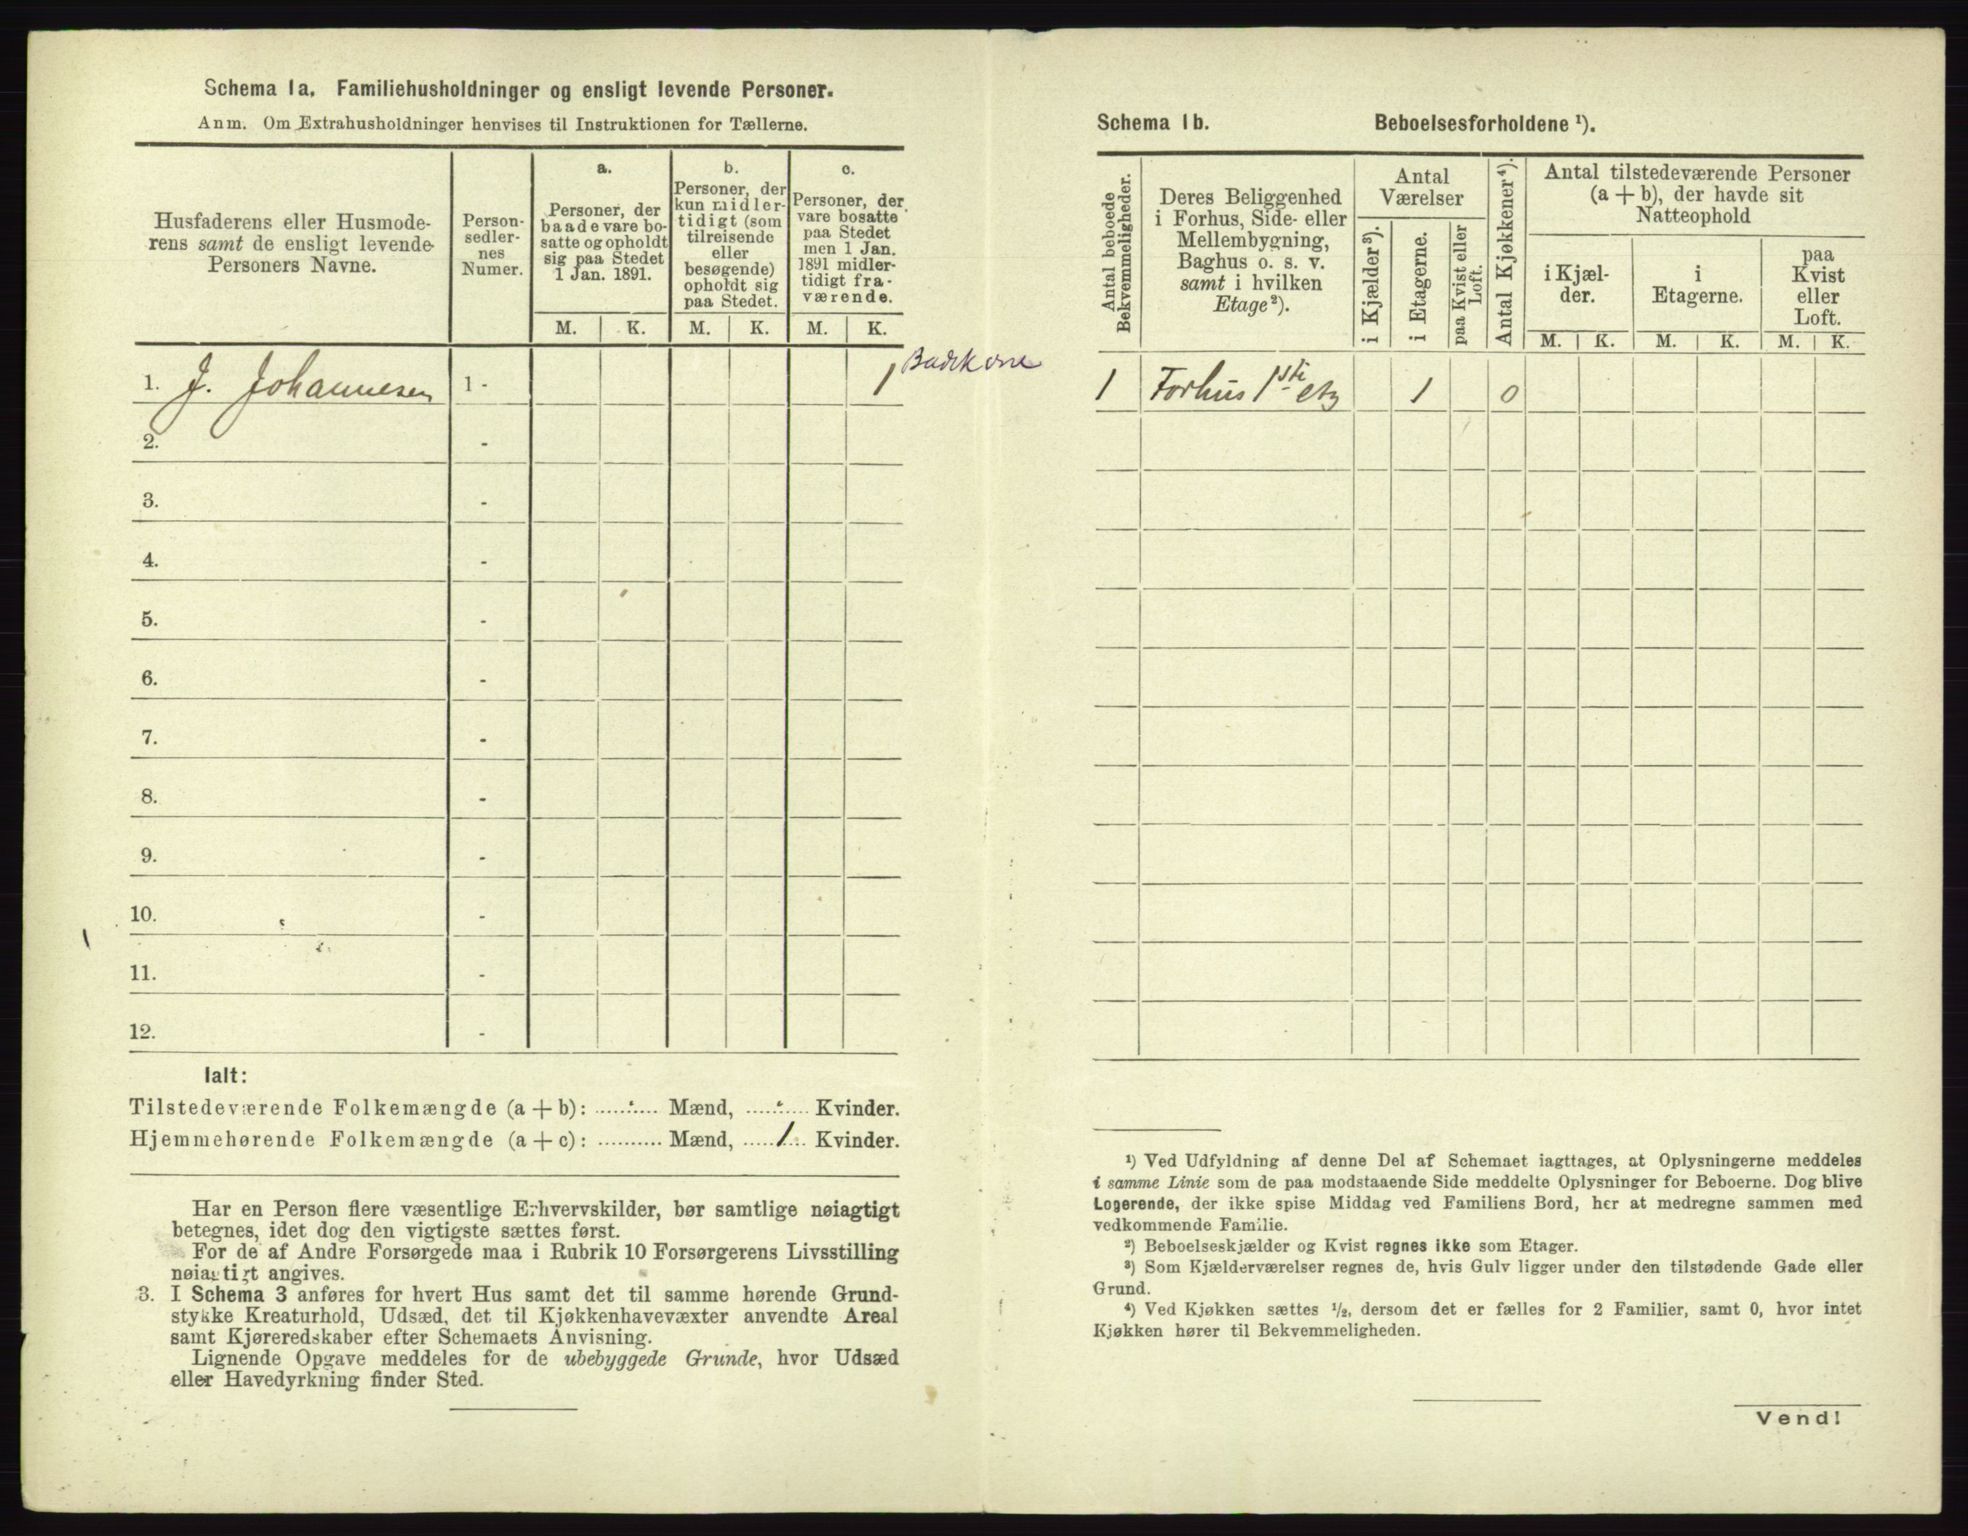 Schema 1a. Familiehusholdninger og ensligt levende Personer.
Anm. Om Extrahusholdninger henvises til Instruktionen for Tællerne.
Husfaderens eller Husmode-
rens samt de ensligt levende
Personers Navne.
Person-
sedler-
nes
Numer.
a.
Personer, der
baade vare bo-
satte og opholdt
sig paa Stedet
1 Jan. 1891.
b.
Personer, der
kun midler-
tidigt (som
tilreisende
eller
besøgende)
opholdt sig
paa Stedet.
c.
Personer, der
vare bosatte
paa Stedet
men 1 Jan.
1891 midler-
tidigt fra-
værende.
M. K. M. K. M. K.
1. J. Johannesen 1 - 1
2. -
3. -
4. -
5. -
6. -
7. -
8. -
9. -
10. -
11. -
12. -
Ialt:
Tilstedeværende Folkemængde (a + b): .......... Mænd, .......... Kvinder.
Hjemmehørende Folkemængde (a + c): .......... Mænd, .....1.... Kvinder.
Har en Person flere væsentlige Erhvervskilder, bør samtlige nøiagtigt
betegnes, idet dog den vigtigste sættes først.
For de af Andre Forsørgede maa i Rubrik 10 Forsørgerens Livsstilling
nøiagtigt angives.
3. I Schema 3 anføres for hvert Hus samt det til samme hørende Grund-
stykke Kreaturhold, Udsæd, det til Kjøkkenhavevæxter anvendte Areal
samt Kjøreredskaber efter Schemaets Anvisning.
Lignende Opgave meddeles for de ubebyggede Grunde, hvor Udsæd
eller Havedyrkning finder Sted.
Schema 1b. Beboelsesforholdene ¹).
Antal beboede
Bekvemmeligheder.
Deres Beliggenhed
i Forhus, Side- eller
Mellembygning,
Baghus o. s. v.
samt i hvilken
Etage²).
Antal
Værelser
i Kjælder³).
i Etagerne.
paa Kvist eller
Loft.
Antal Kjøkkener⁴).
Antal tilstedeværende Personer
(a + b), der havde sit
Natteophold
i Kjæl-
der.
i
Etagerne.
paa
Kvist
eller
Loft.
M. K. M. K. M. K.
1 Forhus 1ste etg 1 0
¹) Ved Udfyldning af denne Del af Schemaet iagttages, at Oplysningerne meddeles
i samme Linie som de paa modstaaende Side meddelte Oplysninger for Beboerne. Dog blive
Logerende, der ikke spise Middag ved Familiens Bord, her at medregne sammen med
vedkommende Familie.
²) Beboelseskjælder og Kvist regnes ikke som Etager.
³) Som Kjælderværelser regnes de, hvis Gulv ligger under den tilstødende Gade eller
Grund.
⁴) Ved Kjøkken sættes ½, dersom det er fælles for 2 Familier, samt 0, hvor intet
Kjøkken hører til Bekvemmeligheden.
Vend!